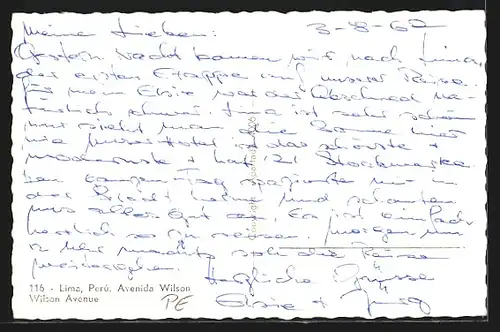 Meine Lieben: 3-8-60
Gestern Nacht kamen wir nach Lima,
der ersten Etappe auf unserer Reise.
Für meine Elsie war der Abschied na-
türlich schwer. Lima ist sehr schön
nur sieht man die Sonne hier
nie. Unser Hotel ist das schönste +
modernste + hat 21 Stockwerke
den ganzen Tag spazierten wir in
der Stadt herum und schauten
uns alles gut an. Es ist einfach
herrlich so zu reisen. Morgen um
Uhr nachts soll die Reise
weitergehen. Herzliche Grüsse
Elsie +
116 - Lima, Perú. Avenida Wilson
Wilson Avenue
PE